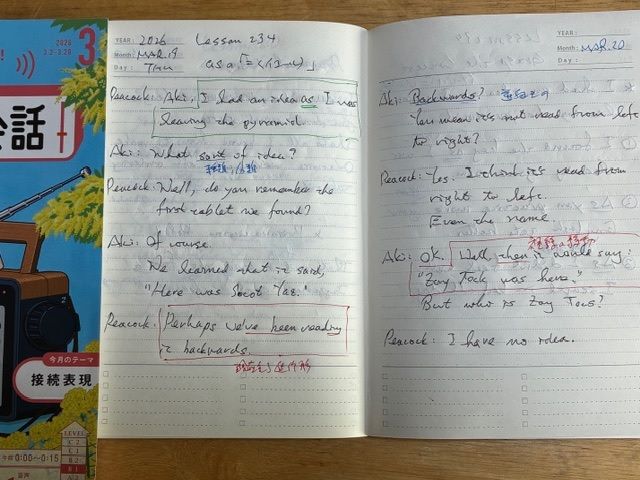 2026
3.2-3.28
3
会話
今月のテーマ
接続表現
LEVEL
C2
C1
B2
B1
A2
午前0:00〜0:15
YEAR: 2026 Lesson 234
Month: MAR.19
Day: Thu as a
Peacock: Aki, I had an idea as I was
leaving the pyramid.
Aki: What sort of idea?
種類
Peacock: Well, do you remember the
first tablet we found?
Aki: Of course.
We learned that it said,
"Here was
Peacock: Perhaps we've been reading
it backwards.
現在完了進行形
YEAR:
Month: MAR.20
Day:
Aki: Backwards?
You mean it's not read from left
to right?
Peacock: Yes. I think it's read from
right to left.
Even the name.
Aki: OK. Well, then it would say:
was here."
But who is
Peacock: I have no idea.